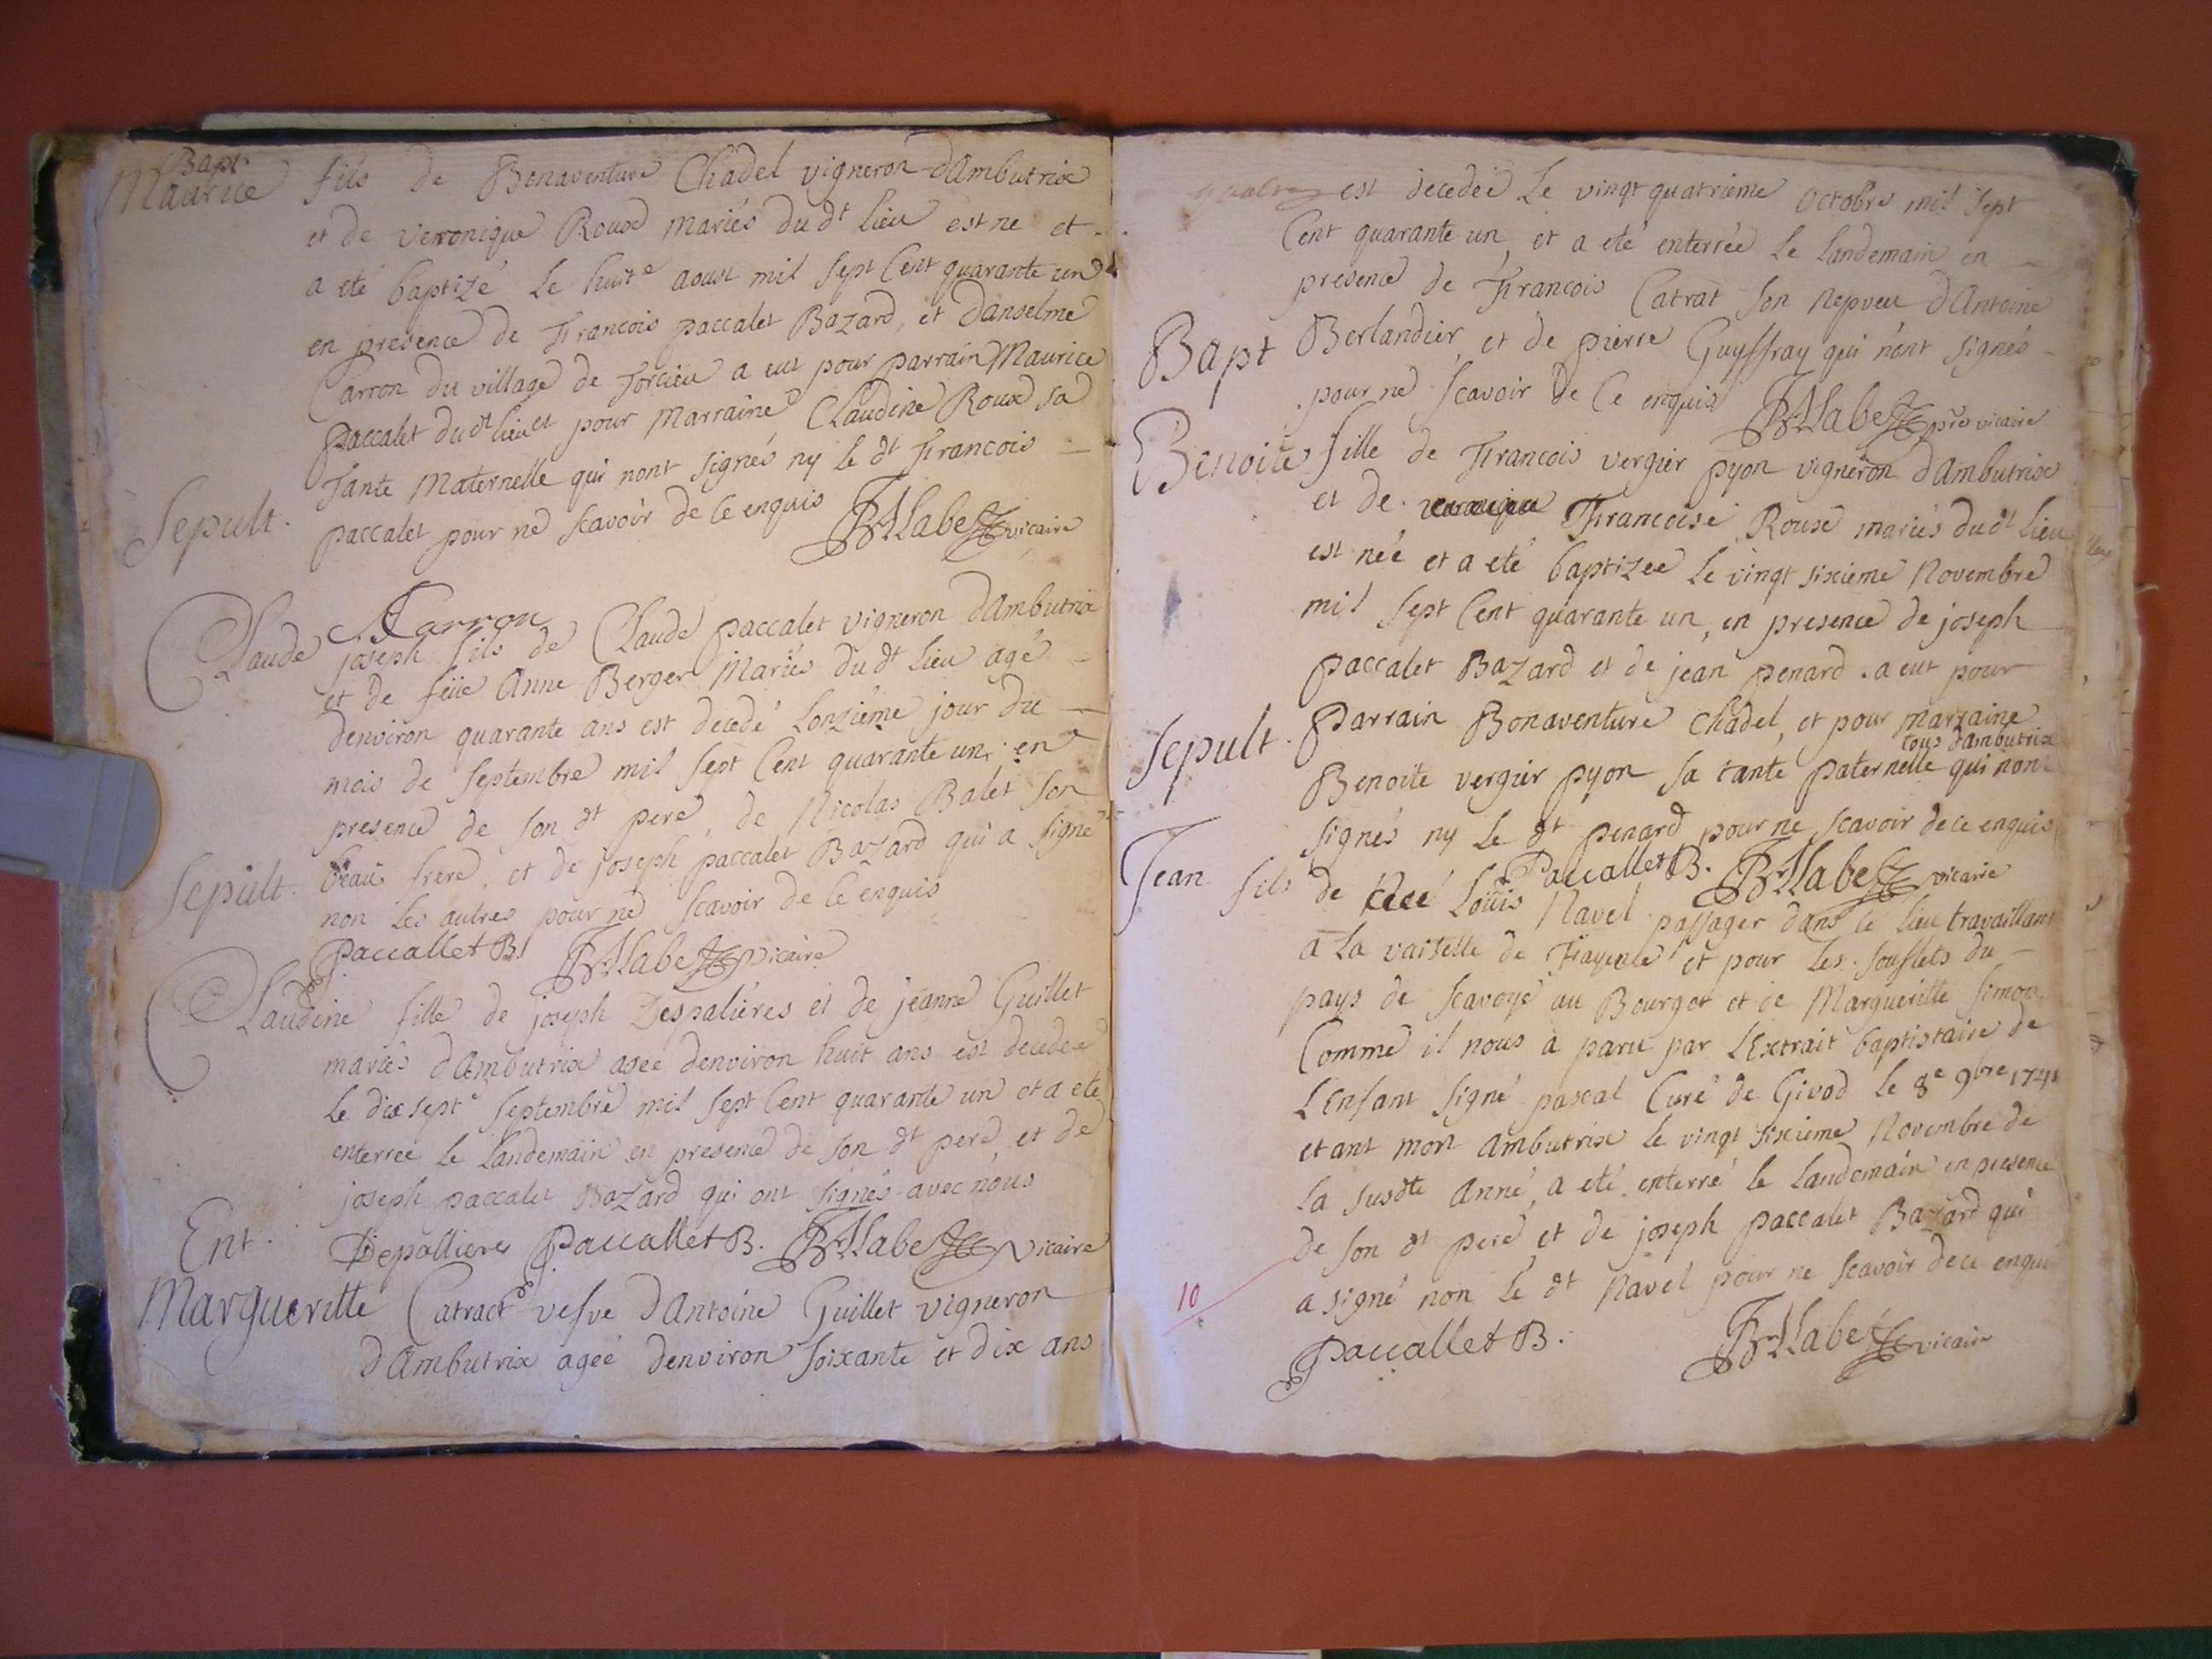 Bapt
Maurice fils de Benaventure Chadel vigneron dAmbutrix
et de veronique Roux mariés du dt lieu est ne et
a eté baptizé le huite aoust mil sept Cent quarante un
en presence de Francois paccalet Bazard, et danselme
Carron du village de Torcieu a eut pour parrain Maurice
Paccalet dudt lieu et pour Marraine Claudine Roux sa
Tante Maternelle qui nont signés ny le dt Francois
Sepult.
paccalet pour ne scavoir de ce enquis vicaire
Carron
Claude joseph fils de Claude paccalet vigneron dAmbutrix
et de feüe Anne Berger Mariés du dt Lieu agé
denviron quarante ans est decedé Lonzieme jour du
mois de septembre mil sept Cent quarante un, en
presence de son dt pere, de Nicolas Balet son
beau frere, et de joseph paccalet Bazard qui a signé
Sepult.
non les autres pour ne scavoir de ce enquis
Paccallet B. vicaire
Claudine fille de joseph Despalières et de jeanne Guillet
mariés dAmbutrix agee denviron huit ans est decedee
le dixsepte septembre mil sept Cent quarante un et a ete
enterree le landemain en presence de son dt pere, et de
joseph paccalet Bazard qui ont signés avec nous
Ent.
Depallieres Paccallet B. vicaire
Marguerite Catract vefve dAntoine Guillet vigneron
dAmbutrix ageé denviron soixante et dix ans
est decedeé le vingt quatrieme octobre mil sept
Cent quarante un, et a eté enterrée le landemain en
presence de Francois Catrat son nepveu dAntoine
Bapt
Berlandier, et de pierre Guyffray qui nont signés
pour ne scavoir de ce enquis vicaire
Benoite fille de Francois vergier pyon vigneron dAmbutrix
et de Francoise Roux mariés du dt lieu
est née et a eté baptizeé le vingt sixieme Novembre
mil sept Cent quarante un, en presence de joseph
paccalet Bazard et de jean penard. a eut pour
Sepult.
Parrain Bonaventure Chadel, et pour marraine
tous dAmbutrix
Benoite vergier pyon sa tante paternelle qui nont
signés ny le dt penard pour ne scavoir de ce enquis
Paccallet B. vicaire
Jean fils de Loüis Navel passager dans ce lieu travaillant
a la vaiselle de Fayence et pour les souflets du
pays de scavoye au Bourget et de Margueritte simon
Comme il nous a paru par LExtrait baptistaire de
LEnfant signé pascal Curé de Givod le 8e 9bre 1741
etant mort Ambutrix le vingt sixieme Novembre de
la susdte Anné, a eté enterré le landemain en presence
de son dt pere et de joseph paccalet Bazard qui
10
a signé non le dt Navel pour ne scavoir de ce enquis
Paccallet B. vicaire